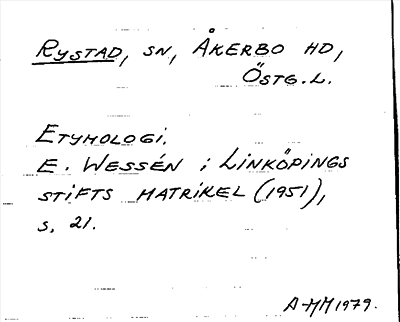 RYSTAD, SN, ÅKERBO HD,
ÖSTG.L.
ETYMOLOGI.
E. WESSÉN i LINKÖPINGS
STIFTS MATRIKEL (1951),
s. 21.
A-MM 1979.